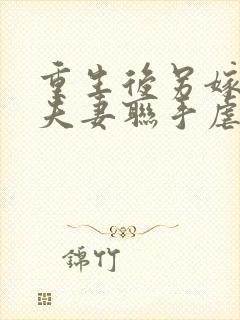 重生後另嫁
夫妻聯手虐
錦竹